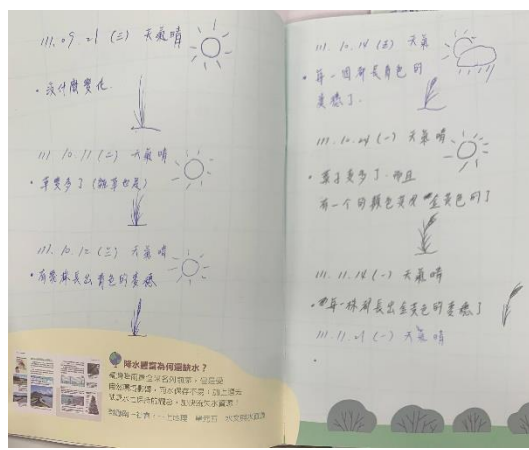 111. 09. 21 (三) 天氣晴
• 沒什麼變化.
111. 10. 11 (二) 天氣晴
• 草變多了 (雜草也是)
111. 10. 12 (三) 天氣晴
• 有幾株長出青色的麥穗
降水豐富為何還缺水？
111. 10. 14 (五) 天氣
• 每一個都長青色的
麥穗了.
111. 10. 24 (一) 天氣晴
• 葉子變多了. 而且
有一个的顏色變成金黃色的了
111. 11. 14 (一) 天氣晴
• 每一株都長出金黃色的麥穗了
111. 11. 21 (一) 天氣晴